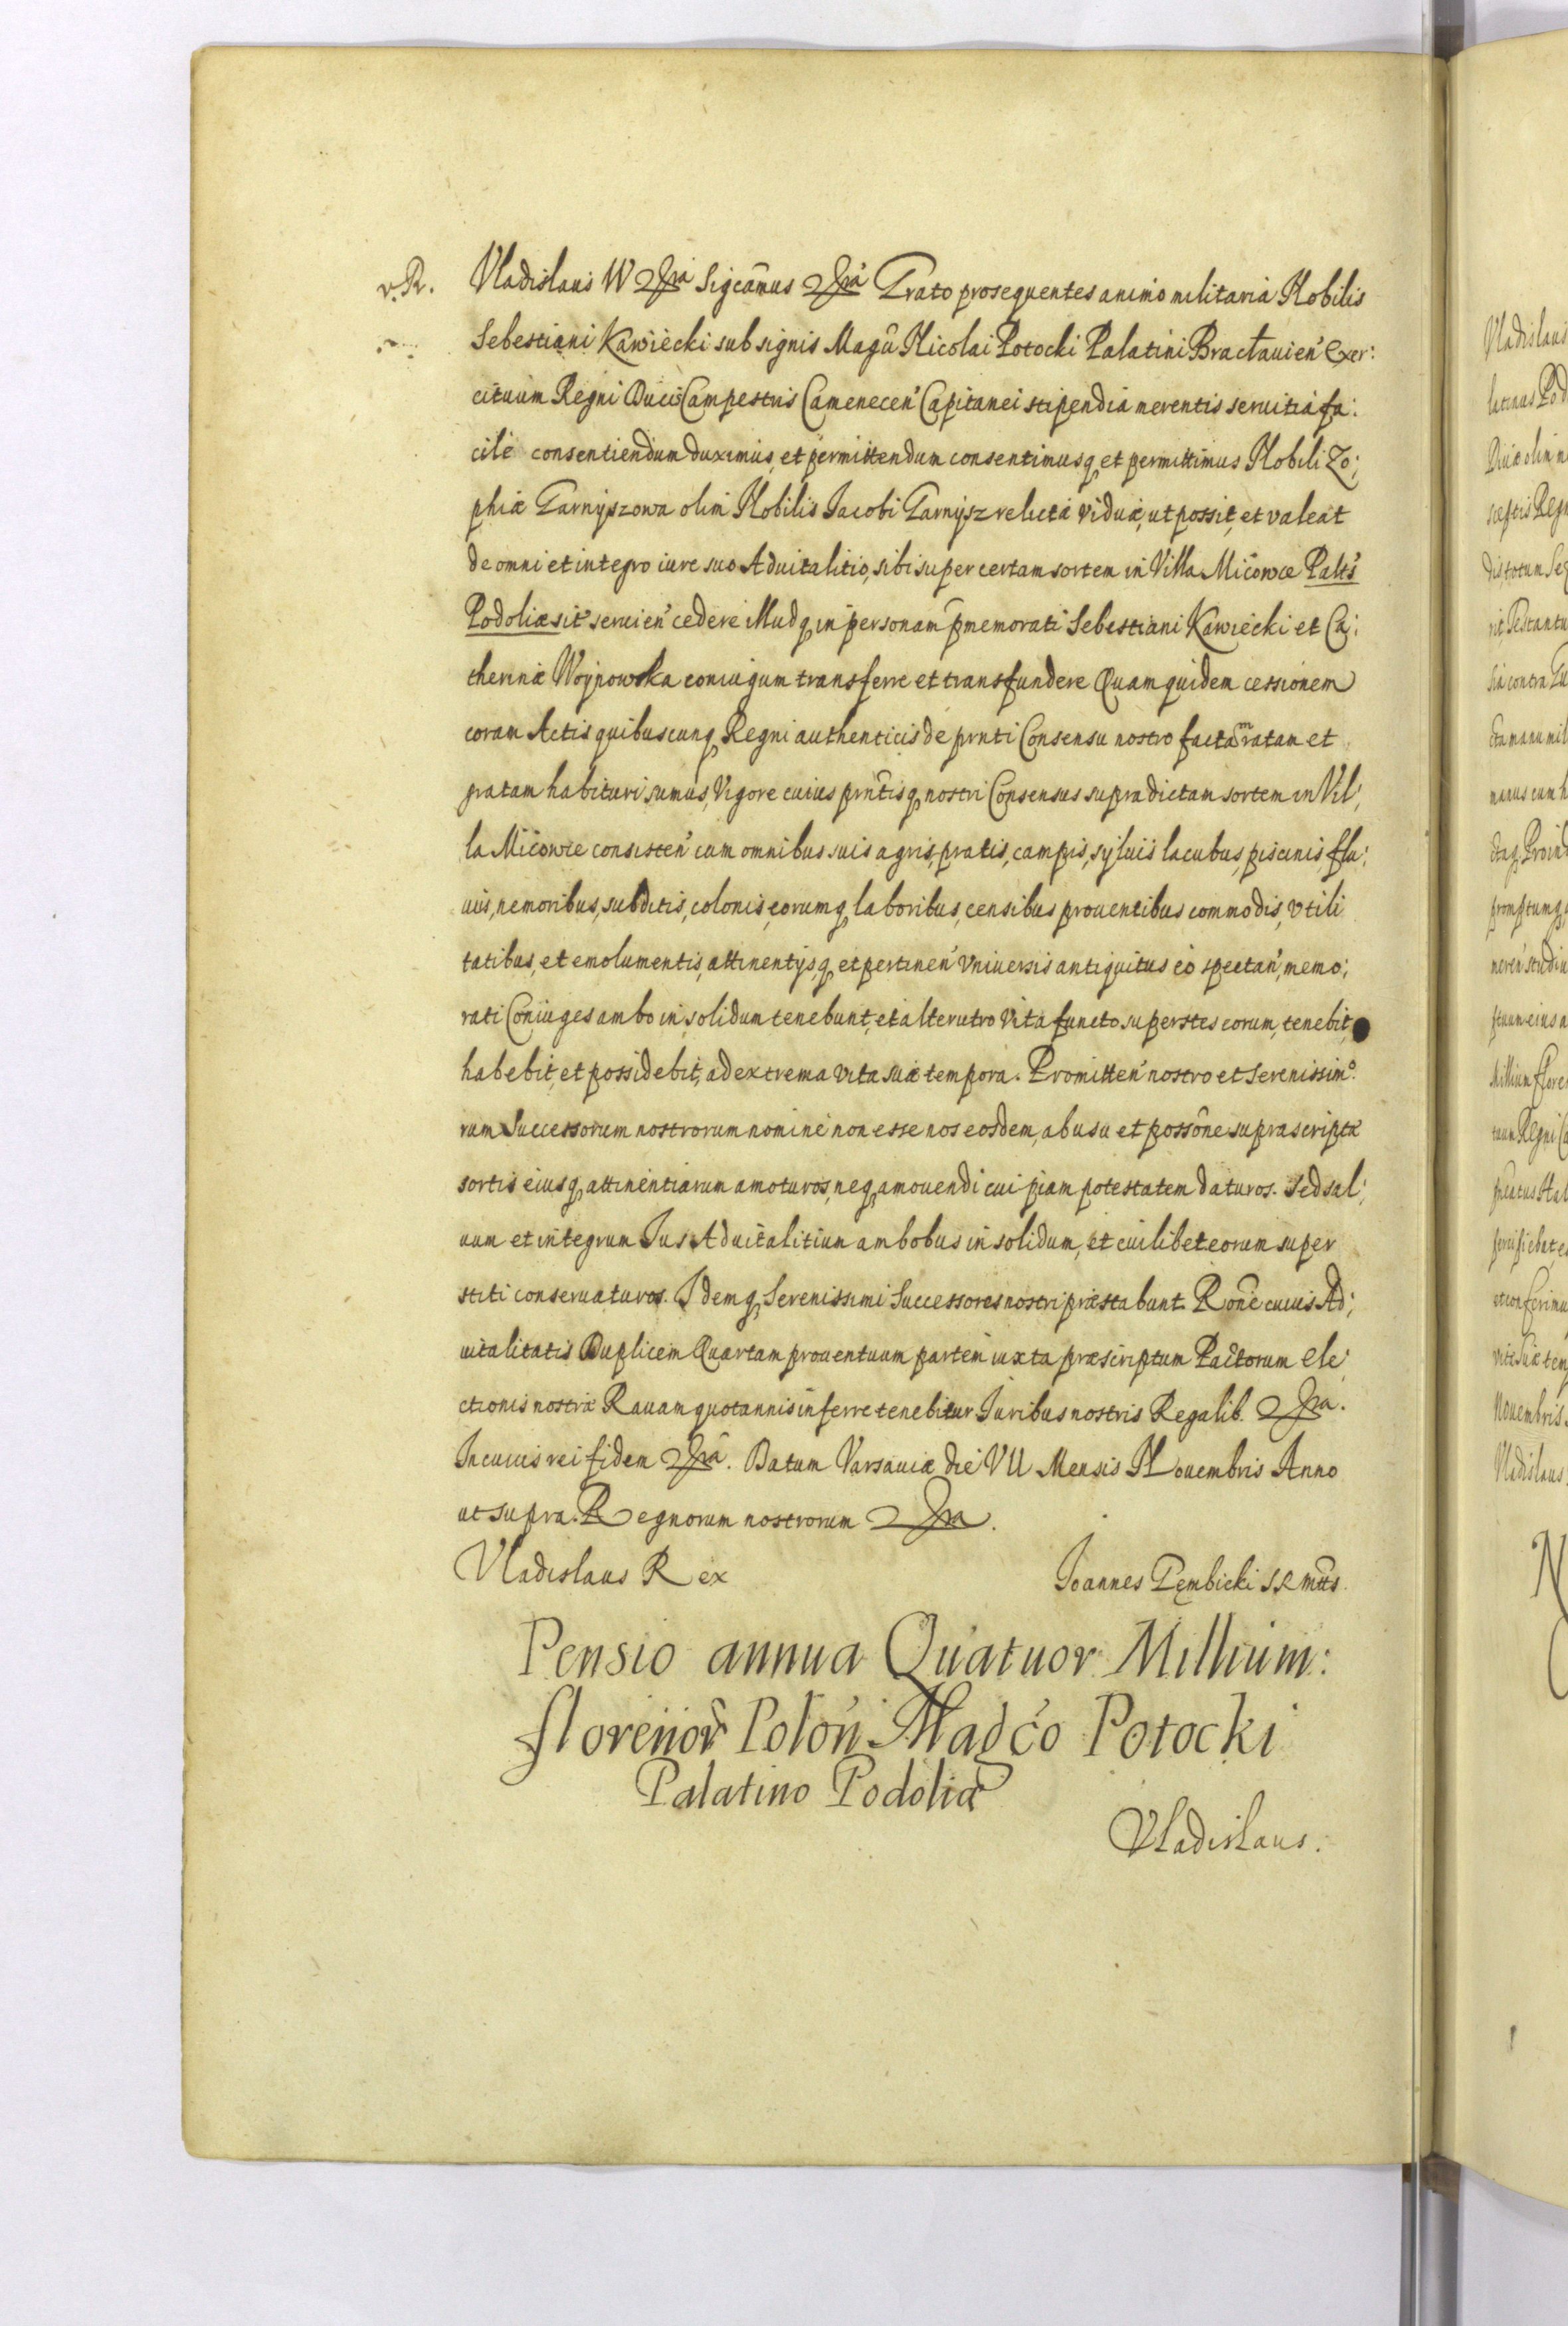 v. R. Vladislaus IV &c̃ra Sigcãmus &c̃ra Grato prosequentes animo militaria Nobilis
Sebestiani Kawiecki sub signis Magci Nicolai Potocki Palatini Bractauien̄ Exer:
cituum Regni Ducis Campestris Camenecen̄ Capitanei stipendia merentis seruitia fa:
cile consentiendum duximus, et permittendum consentimusq, et permittimus Nobili Zo:
phiæ Tarnyszowa olim Nobilis Jacobi Tarnysz relictæ viduæ, ut possit, et valeat
de omni et integro iure suo Aduitalitio, sibi super certam sortem in Villa Micowce Palts̄
Podoliæ sit̄ seruien̄ cedere illudq, in personam p̄memorati Sebestiani Kawiecki et Ca:
therinæ Woynowska coniugum transferre et transfundere Quam quidem cessionem
coram Actis quibuscunq, Regni authenticis de prn̄ti Consensu nostro factam ratam et
gratam habituri sumus, Vigore cuius prn̄tisq, nostri Consensus supradictam sortem in Vil:
la Micowce consisten̄ cum omnibus suis agris, pratis, campis, syluis lacubus, piscinis, flu:
uiis, nemoribus, subditis, colonis, eorumq, laboribus, censibus prouentibus commodis, vtili
tatibus, et emolumentis, attinentijsq, et pertinen̄ vniuersis antiquitus eo spectan̄, memo:
rati Coniuges ambo in solidum tenebunt, et alterutro vita functo superstes eorum, tenebit,
habebit, et possidebit, ad extrema vitæ suæ tempora. Promitten̄ nostro et Serenissimo
rum Successorum nostrorum nomine non esse nos eosdem, ab usu et possōne suprascriptæ
sortis eiusq, attinentiarum amoturos, neq, amouendi cuipiam potestatem daturos. Sed sal:
uum et integrum Ius Aduitalitium ambobus in solidum, et cuilibet eorum super
stiti conseruaturos. Idemq, Serenissimi Successores nostri præstabunt. Rōne cuius Ad:
uitalitatis Duplicem Quartam prouentuum partem iuxta præscriptum Pactorum ele:
ctionis nostræ Rauam quotannis inferre tenebitur Iuribus nostris Regalib. &c̃ra.
In cuius rei fidem &c̃ra. Datum Varsauiæ die VII Mensis Nouembris Anno
ut supra. Regnorum nostrorum &c̃ra.
Vladislaus Rex Joannes Gębicki SR mtts.
Pensio annua Quatuor Millium:
florenor̃ Polon̄ Magco Potocki
Palatino Podoliæ
Vladislaus.